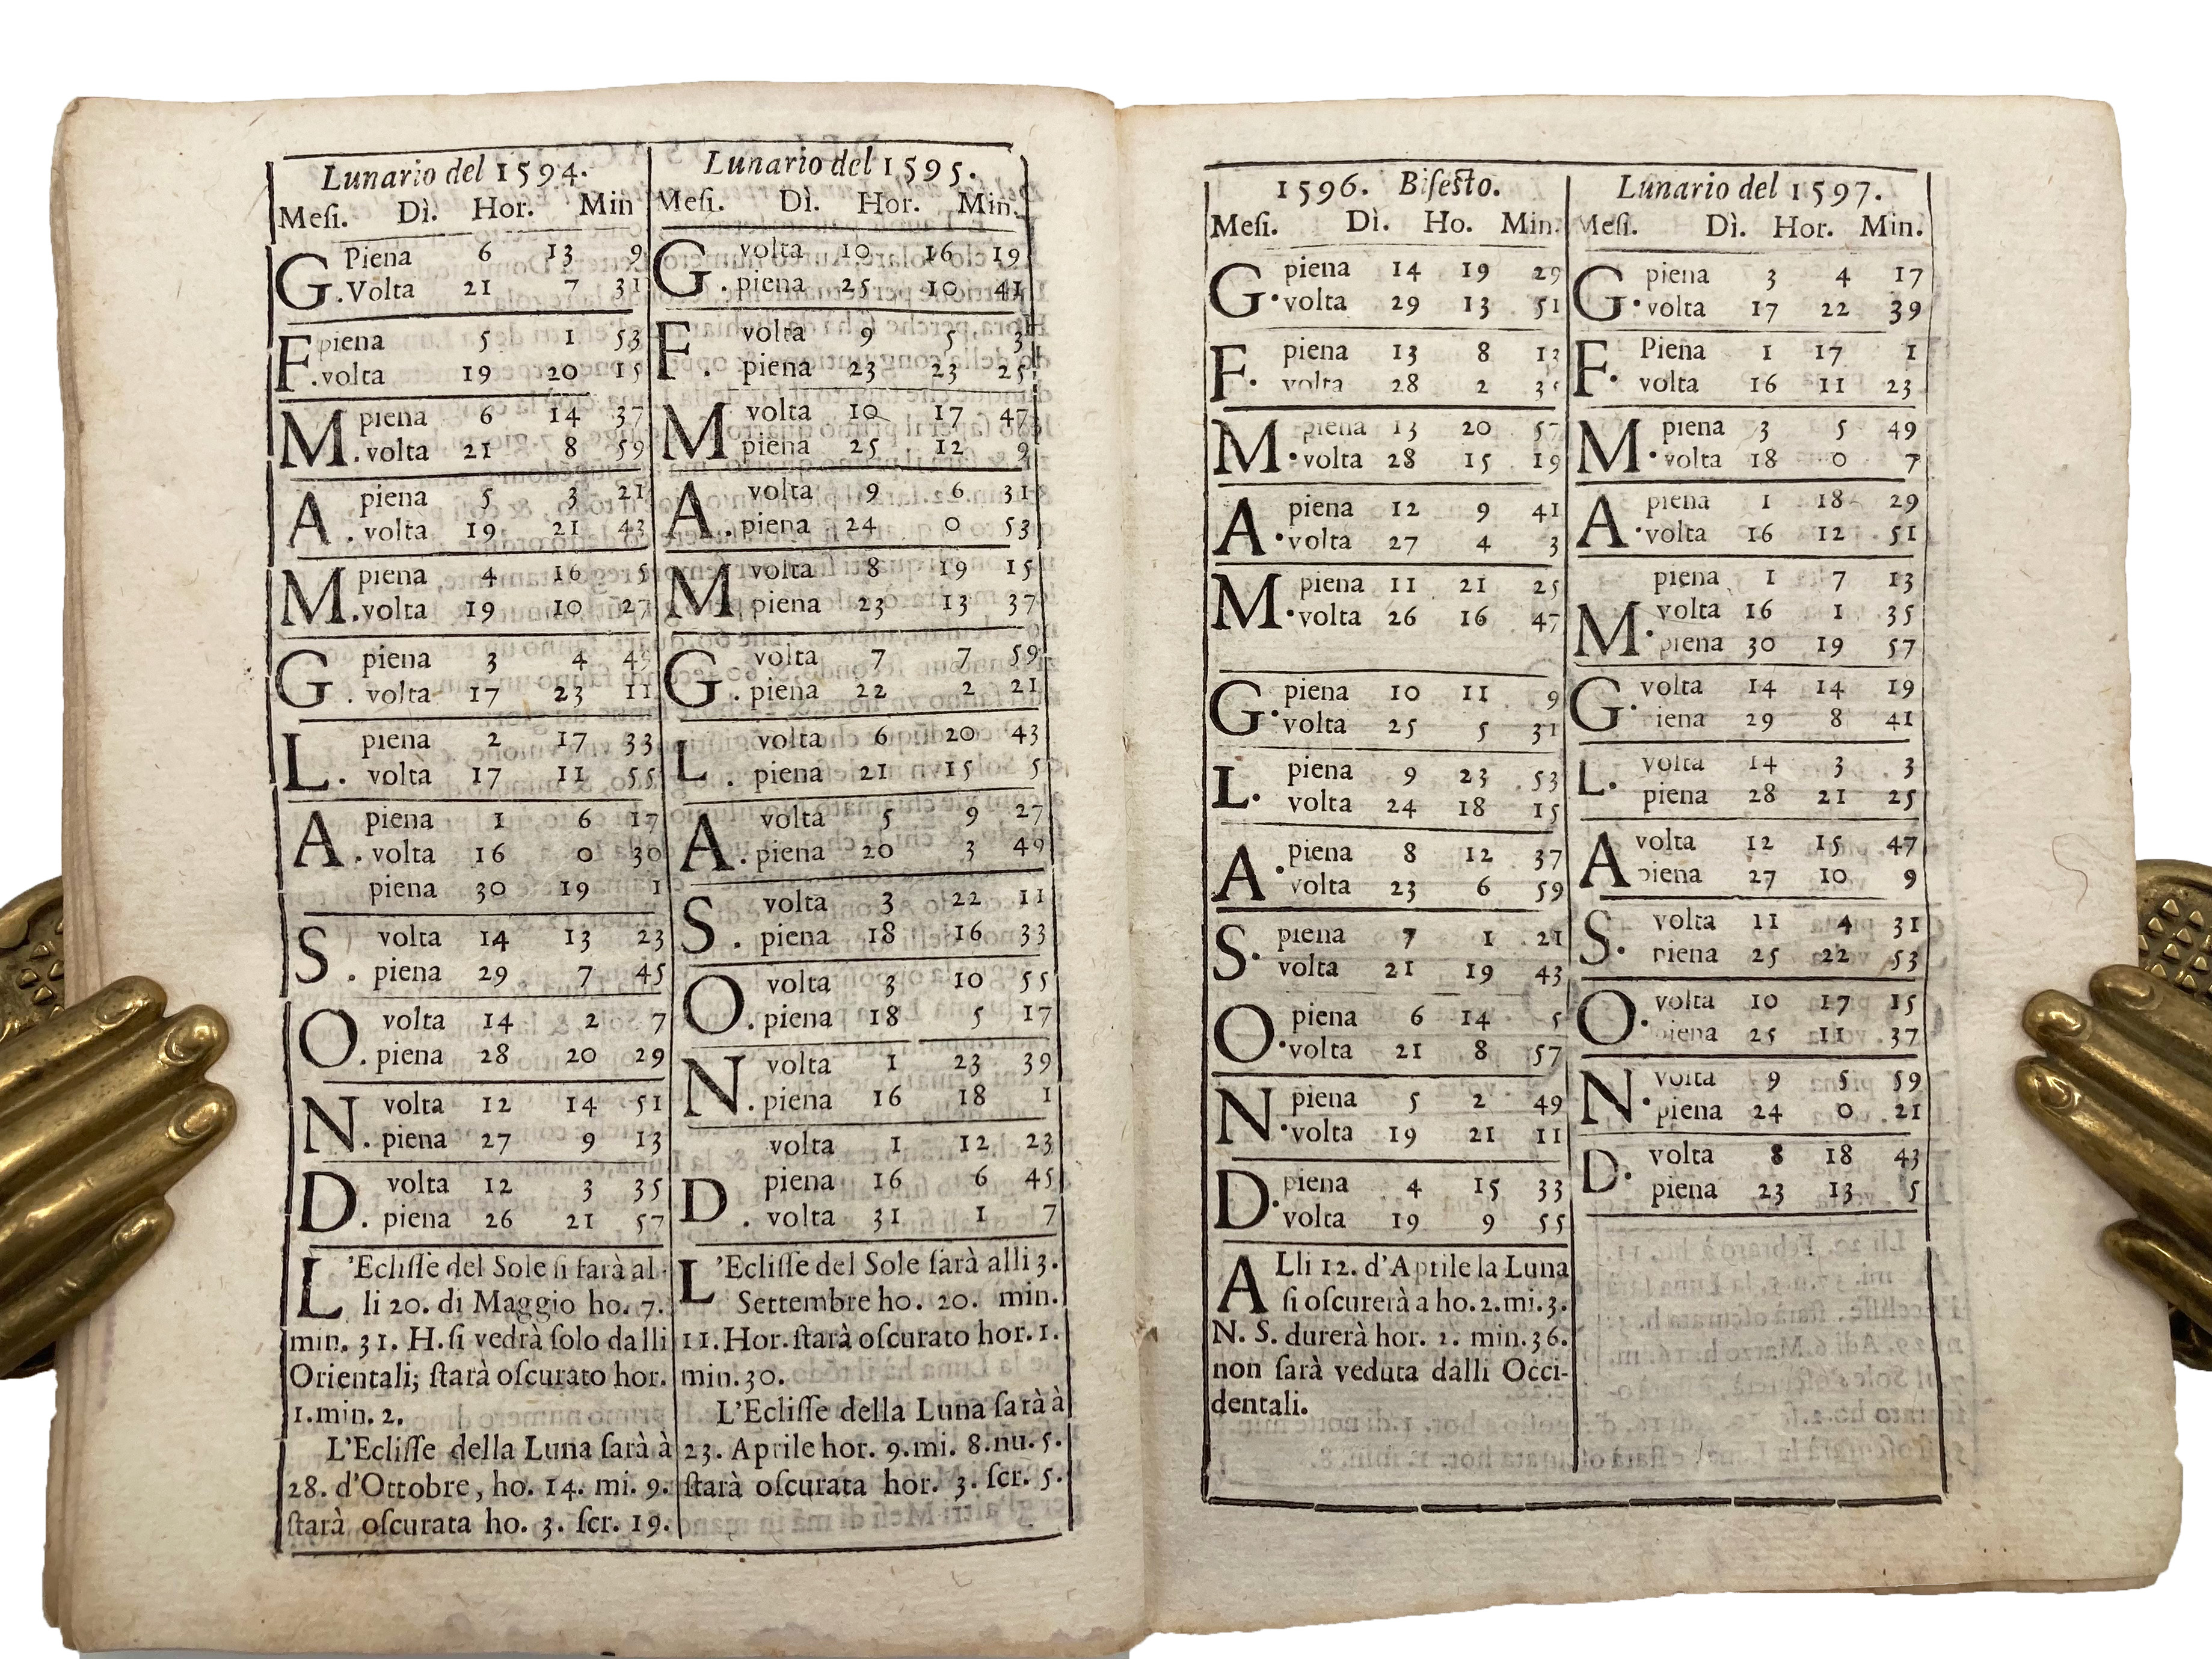 Lunario del 1594.
Meſi. Dì. Hor. Min
G. Piena 6 13 9
Volta 21 7 31
F. piena 5 1 53
volta 19 20 15
M. piena 6 14 37
volta 21 8 59
A. piena 5 3 21
volta 19 21 43
M. piena 4 16 5
volta 19 10 27
G. piena 3 4 49
volta 17 23 11
L. piena 2 17 33
volta 17 11 55
A. piena 1 6 17
volta 16 0 30
piena 30 19 1
S. volta 14 13 23
piena 29 7 45
O. volta 14 2 7
piena 28 20 29
N. volta 12 14 51
piena 27 9 13
D. volta 12 3 35
piena 26 21 57
L'Ecliſſe del Sole ſi farà al-
li 20. di Maggio ho. 7.
min. 31. H. ſi vedrà ſolo dalli
Orientali; ſtarà oſcurato hor.
1. min. 2.
L'Ecliſſe della Luna ſarà à
28. d'Ottobre, ho. 14. mi. 9.
ſtarà oſcurata ho. 3. ſcr. 19.
Lunario del 1595.
Meſi. Dì. Hor. Min.
G. volta 10 16 19
piena 25 10 41
F. volta 9 5 3
piena 23 23 25
M volta 10 17 47
piena 25 12 9
A. volta 9 6 31
piena 24 0 53
M volta 8 19 15
piena 23 13 37
G. volta 7 7 59
piena 22 2 21
L. volta 6 20 43
piena 21 15 5
A. volta 5 9 27
piena 20 3 49
S. volta 3 22 11
piena 18 16 33
O. volta 3 10 55
piena 18 5 17
N. volta 1 23 39
piena 16 18 1
volta 1 12 23
D. piena 16 6 45
volta 31 1 7
L'Ecliſſe del Sole ſarà alli 3.
Settembre ho. 20. min.
11. Hor. ſtarà oſcurato hor. 1.
min. 30.
L'Ecliſſe della Luna ſarà à
23. Aprile hor. 9. mi. 8. nu. 5.
ſtarà oſcurata hor. 3. ſcr. 5.
1596. Biſeſto.
Meſi. Dì. Ho. Min.
G. piena 14 19 29
volta 29 13 51
F. piena 13 8 13
volta 28 2 35
M. piena 13 20 57
volta 28 15 19
A. piena 12 9 41
volta 27 4 3
M. piena 11 21 25
volta 26 16 47
G. piena 10 11 9
volta 25 5 31
L. piena 9 23 53
volta 24 18 15
A. piena 8 12 37
volta 23 6 59
S. piena 7 1 21
volta 21 19 43
O. piena 6 14 5
volta 21 8 57
N. piena 5 2 49
volta 19 21 11
D. piena 4 15 33
volta 19 9 55
ALli 12. d'Aprile la Luna
ſi oſcurerà a ho. 2. mi. 3.
N. S. durerà hor. 2. min. 36.
non ſarà veduta dalli Occi-
dentali.
Lunario del 1597.
Meſi. Dì. Hor. Min.
G. piena 3 4 17
volta 17 22 39
F. Piena 1 17 1
volta 16 11 23
M. piena 3 5 49
volta 18 0 7
A. piena 1 18 29
volta 16 12 51
piena 1 7 13
M. volta 16 1 35
piena 30 19 57
G. volta 14 14 19
piena 29 8 41
L. volta 14 3 3
piena 28 21 25
A volta 12 15 47
piena 27 10 9
S. volta 11 4 31
piena 25 22 53
O. volta 10 17 15
piena 25 11 37
N. volta 9 5 59
piena 24 0 21
D. volta 8 18 43
piena 23 13 5